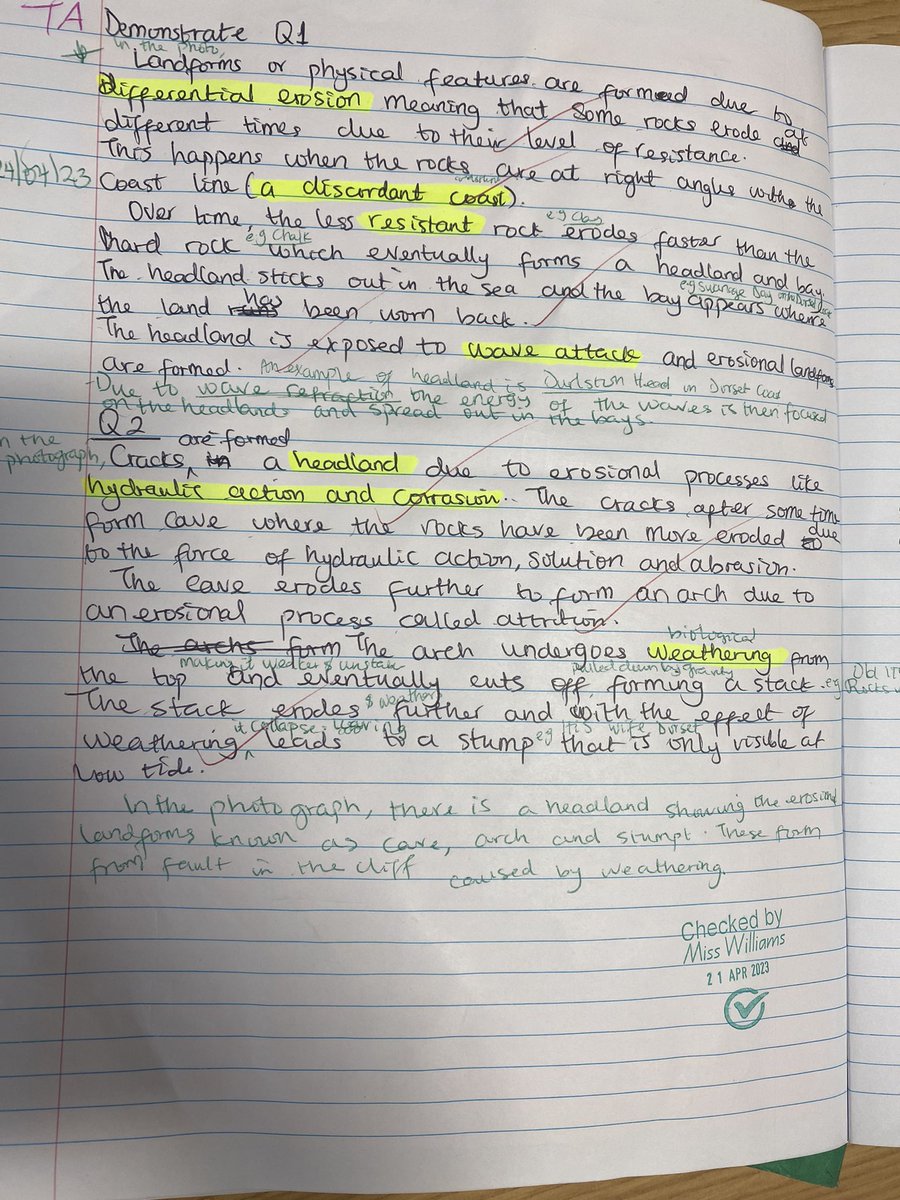 TA
Demonstrate Q1
in the photo,
Landforms or physical features are formed due to
differential erosion meaning that some rocks erode at
different times due to their level of resistance.
This happens when the rocks are at right angles with the
24/04/23
Coast line (a discordant coast).
Over time, the less resistant rock eg Clay erodes faster than the
hard rock eg Chalk which eventually forms a headland and bay.
The headland sticks out in the sea and the bay appears where
eg Swanage Bay on the Dorset
the land has been worn back.
The headland is exposed to wave attack and erosional landforms
are formed. An example of headland is Durlston Head in Dorset Coast
Due to wave refraction the energy of the waves is then focused
on the headlands and spread out in the bays.
Q2
In the
photograph, Cracks are formed in a headland due to erosional processes like
hydraulic action and corrasion. The cracks after some time
form cave where the rocks have been more eroded due
to the force of hydraulic action, solution and abrasion.
The cave erodes further to form an arch due to
an erosional process called attrition.
The archs form The arch undergoes biological weathering from
making it weaker & unstable
pulled down by gravity
the top and eventually cuts off, forming a stack. eg Old
Rocks
The stack erodes & weathers further and with the effect of
weathering it collapse leads to a stump eg His wife Dorset that is only visible at
low tide.
In the photograph, there is a headland showing the erosional
landforms known as cave, arch and stumpt. These form
from fault in the cliff caused by weathering.
Checked by
Miss Williams
21 APR 2023